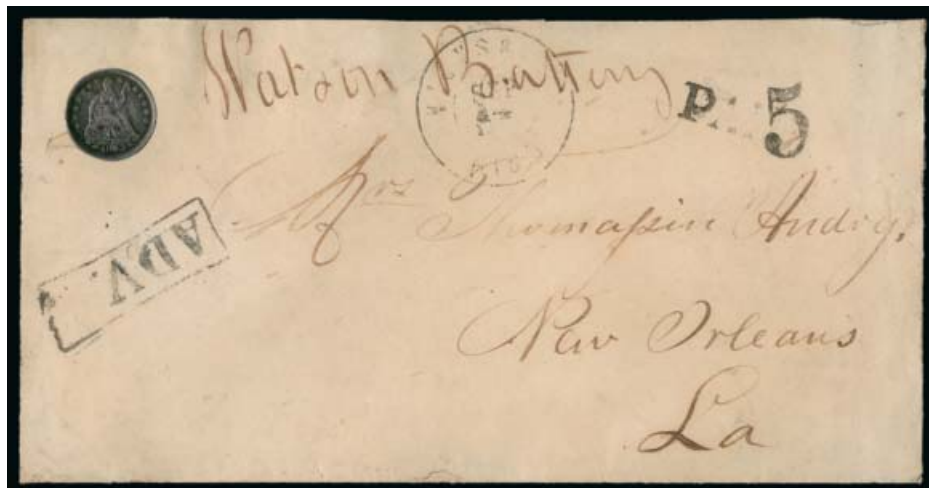 Watson Battery
P 5
ADV.
Mrs Thomassin Andry.
New Orleans
La